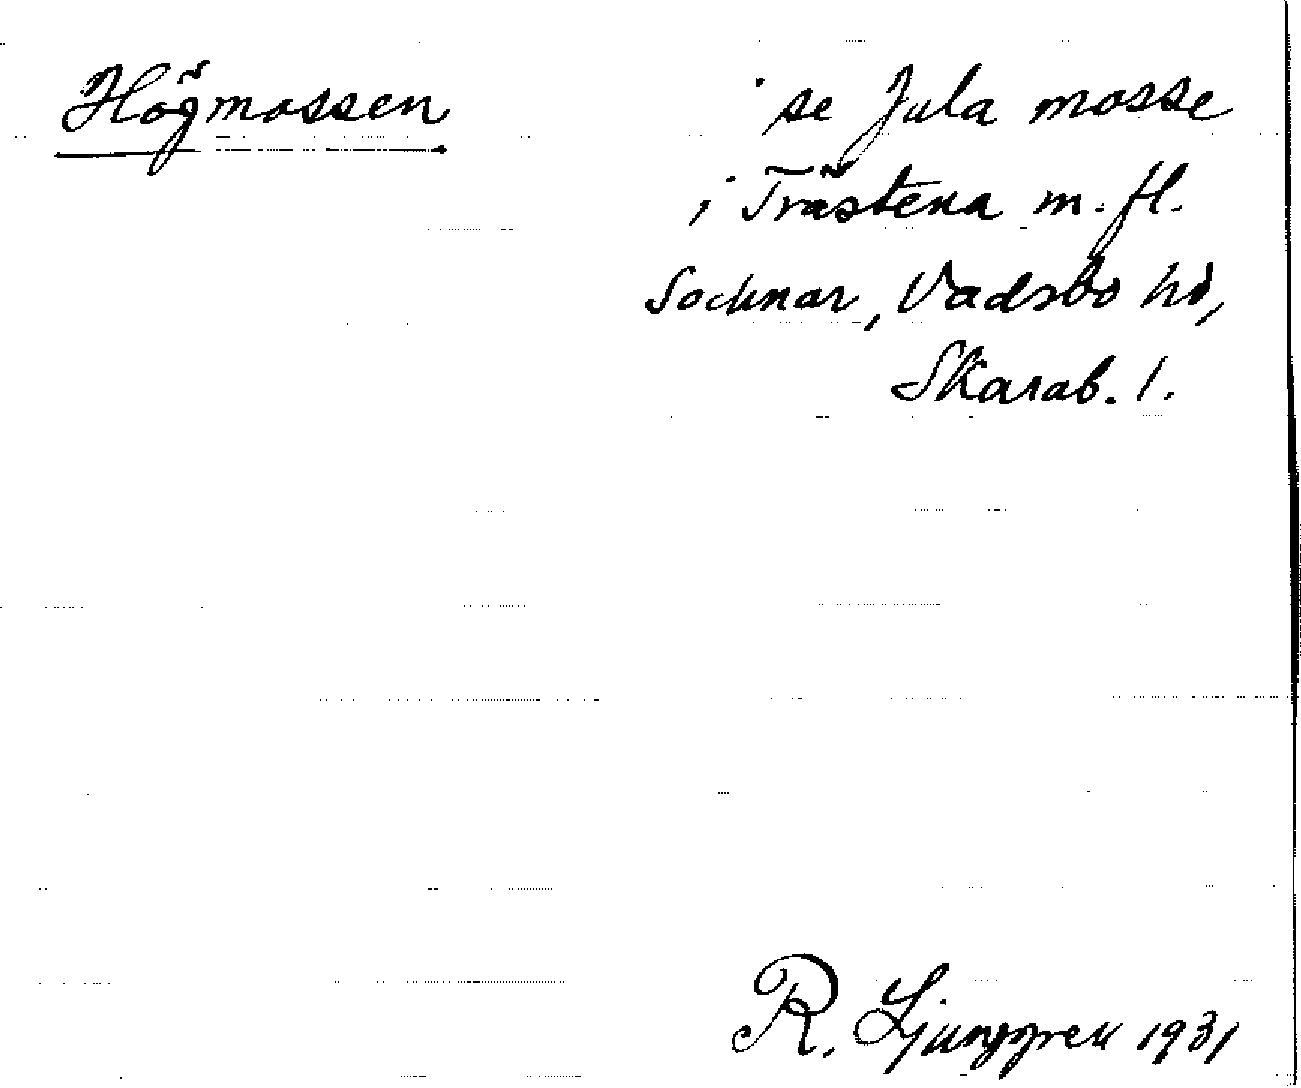 Högmossen
se Jula mosse
i Trästena m. fl.
Socknar, Vadsbo hd,
Skarab. l.
R. Ljunggren 1931